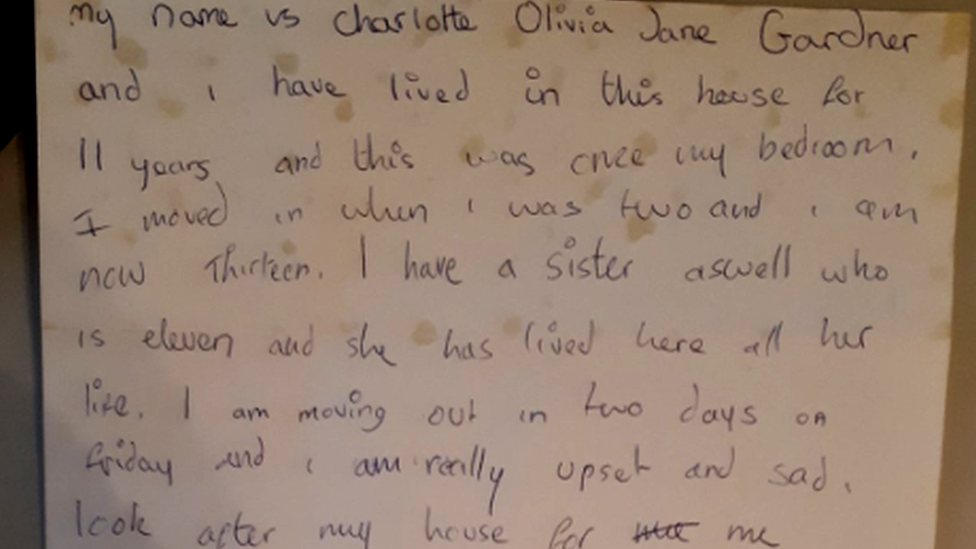 My name is Charlotte Olivia Jane Gardner
and i have lived in this house for
11 years and this was once my bedroom.
I moved in when i was two and i am
now Thirteen. I have a sister aswell who
is eleven and she has lived here all her
life. I am moving out in two days on
friday and i am really upset and sad.
look after my house for me